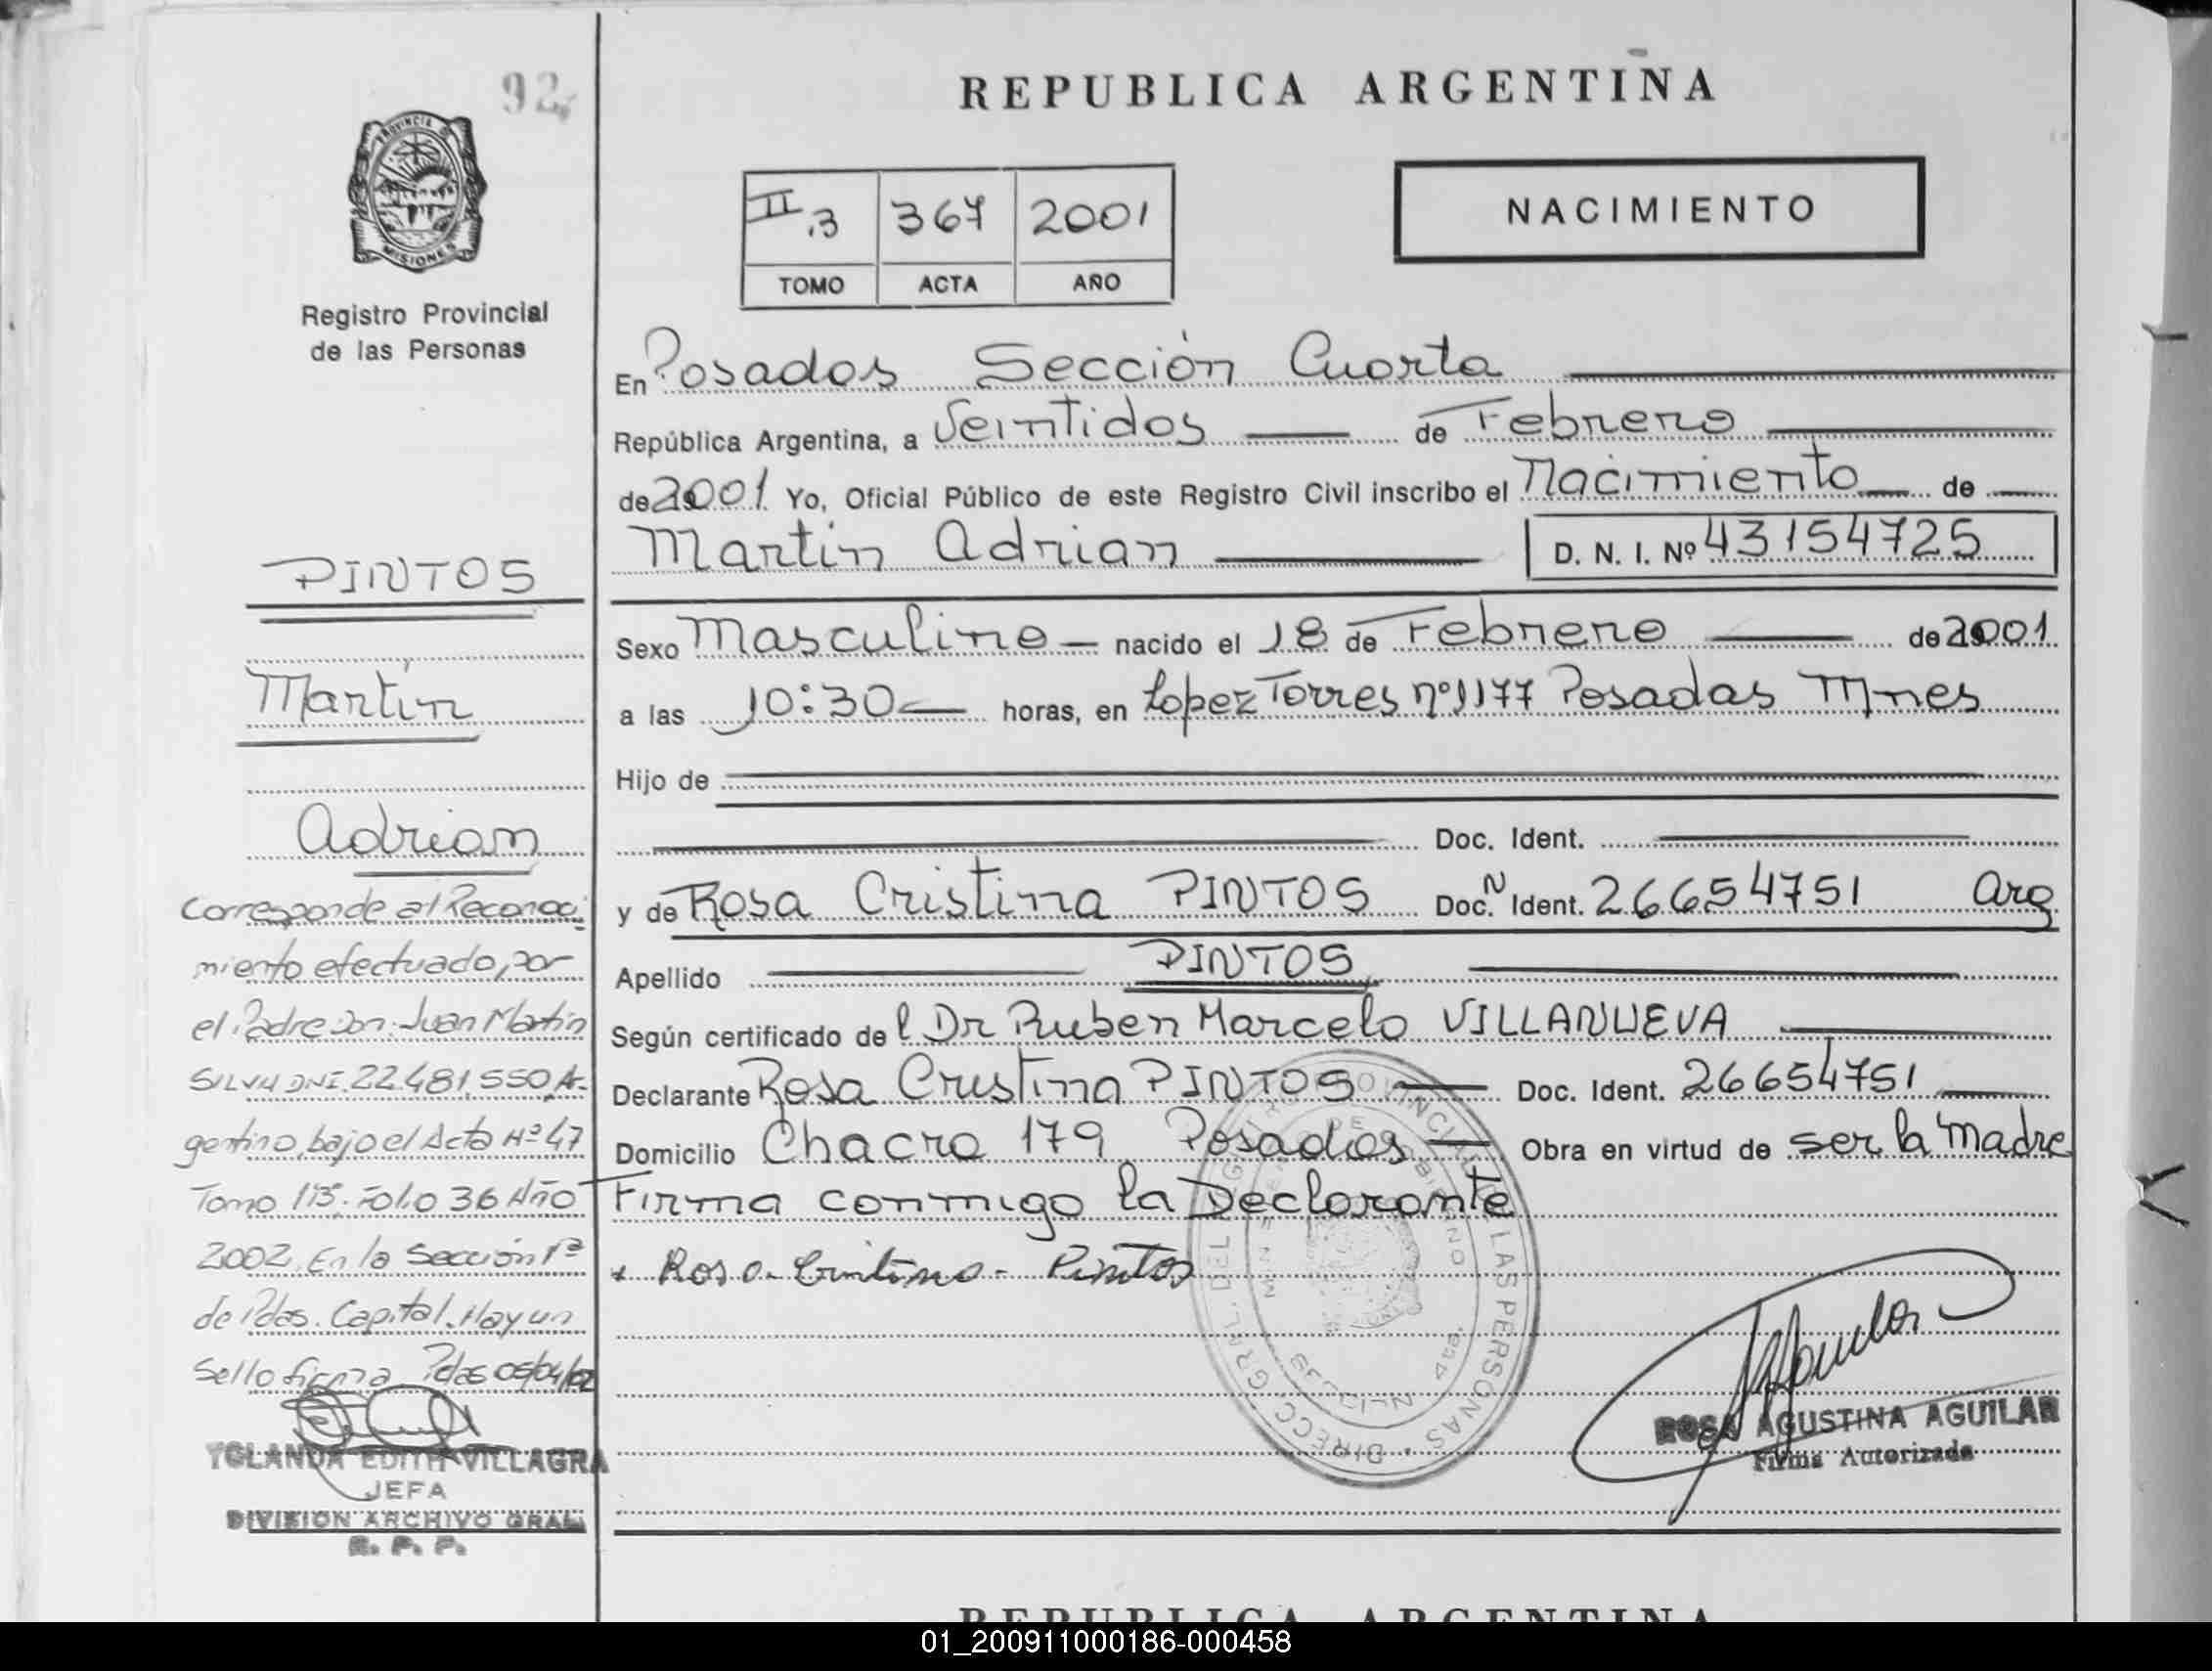 92
PROVINCIA DE
MISIONES
Registro Provincial
de las Personas
PINTOS
Martín
Adrian
Corresponde al Reconoci
miento efectuado, por
el Padre Don: Juan Martín
SILVA DNI. 22.481.550, Ar-
gentino, bajo el Acta Nº 47
Tomo 1º3: Folio 36 Año
2002. En la Sección 1ª
de Pdas. Capital. Hay un
Sello firma Pdas 05/04/02
YOLANDA EDITH VILLAGRA
JEFA
DIVISION ARCHIVO GRAL.
R. P. P.
REPUBLICA ARGENTINA
II.3 367 2001
TOMO ACTA AÑO
NACIMIENTO
En Posadas Sección Cuarta
República Argentina, a Veintidos de Febrero
de 2001 Yo, Oficial Público de este Registro Civil inscribo el Nacimiento de
Martín Adrian D. N. I. Nº 43154725
Sexo Masculino nacido el 18 de Febrero de 2001
a las 10:30 horas, en Lopez Torres nº 1177 Posadas Mnes
Hijo de
Doc. Ident.
y de Rosa Cristina PINTOS Doc. N Ident. 26654751 Arg
Apellido PINTOS
Según certificado de l Dr Ruben Marcelo VILLANUEVA
Declarante Rosa Cristina PINTOS Doc. Ident. 26654751
Domicilio Chacra 179 Posadas Obra en virtud de ser la Madre
Firma conmigo la Declarante
Rosa Cristina Pintos
DIRECC. GRAL. DEL REGISTRO PROVINCIAL DE LAS PERSONAS
ROSA AGUSTINA AGUILAR
Firma Autorizada
REPUBLICA ARGENTINA
01_200911000186-000458